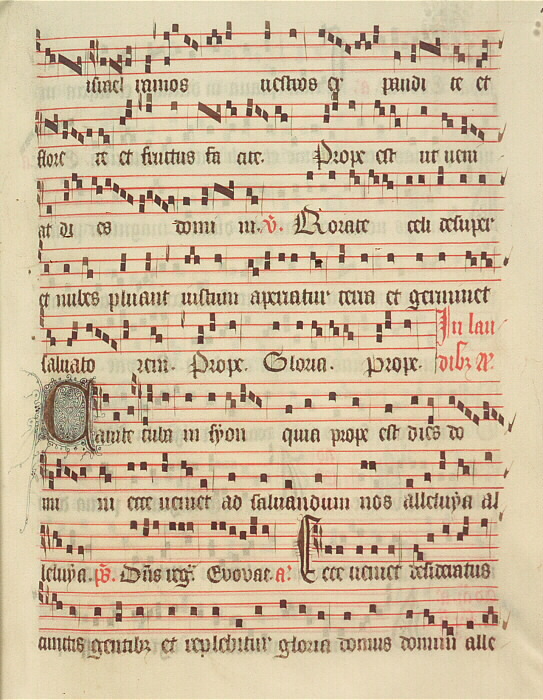 israel ramos uestros ex pandi te et
flore te et fructus fa cite. Prope est ut ueni
at di es domi ni. V. Rorate celi desuper
et nubes pluant iustum aperiatur terra et germinet
saluato rem. Prope. Gloria. Prope. In lau
dibz a.
Canite tuba in syon quia prope est dies do
mi ni ecce ueniet ad saluandum nos alleluya al
leluya. ps. Dns reg. Evovae. a. Ecce ueniet desideratus
cunctis gentibz et replebitur gloria domus domini alle